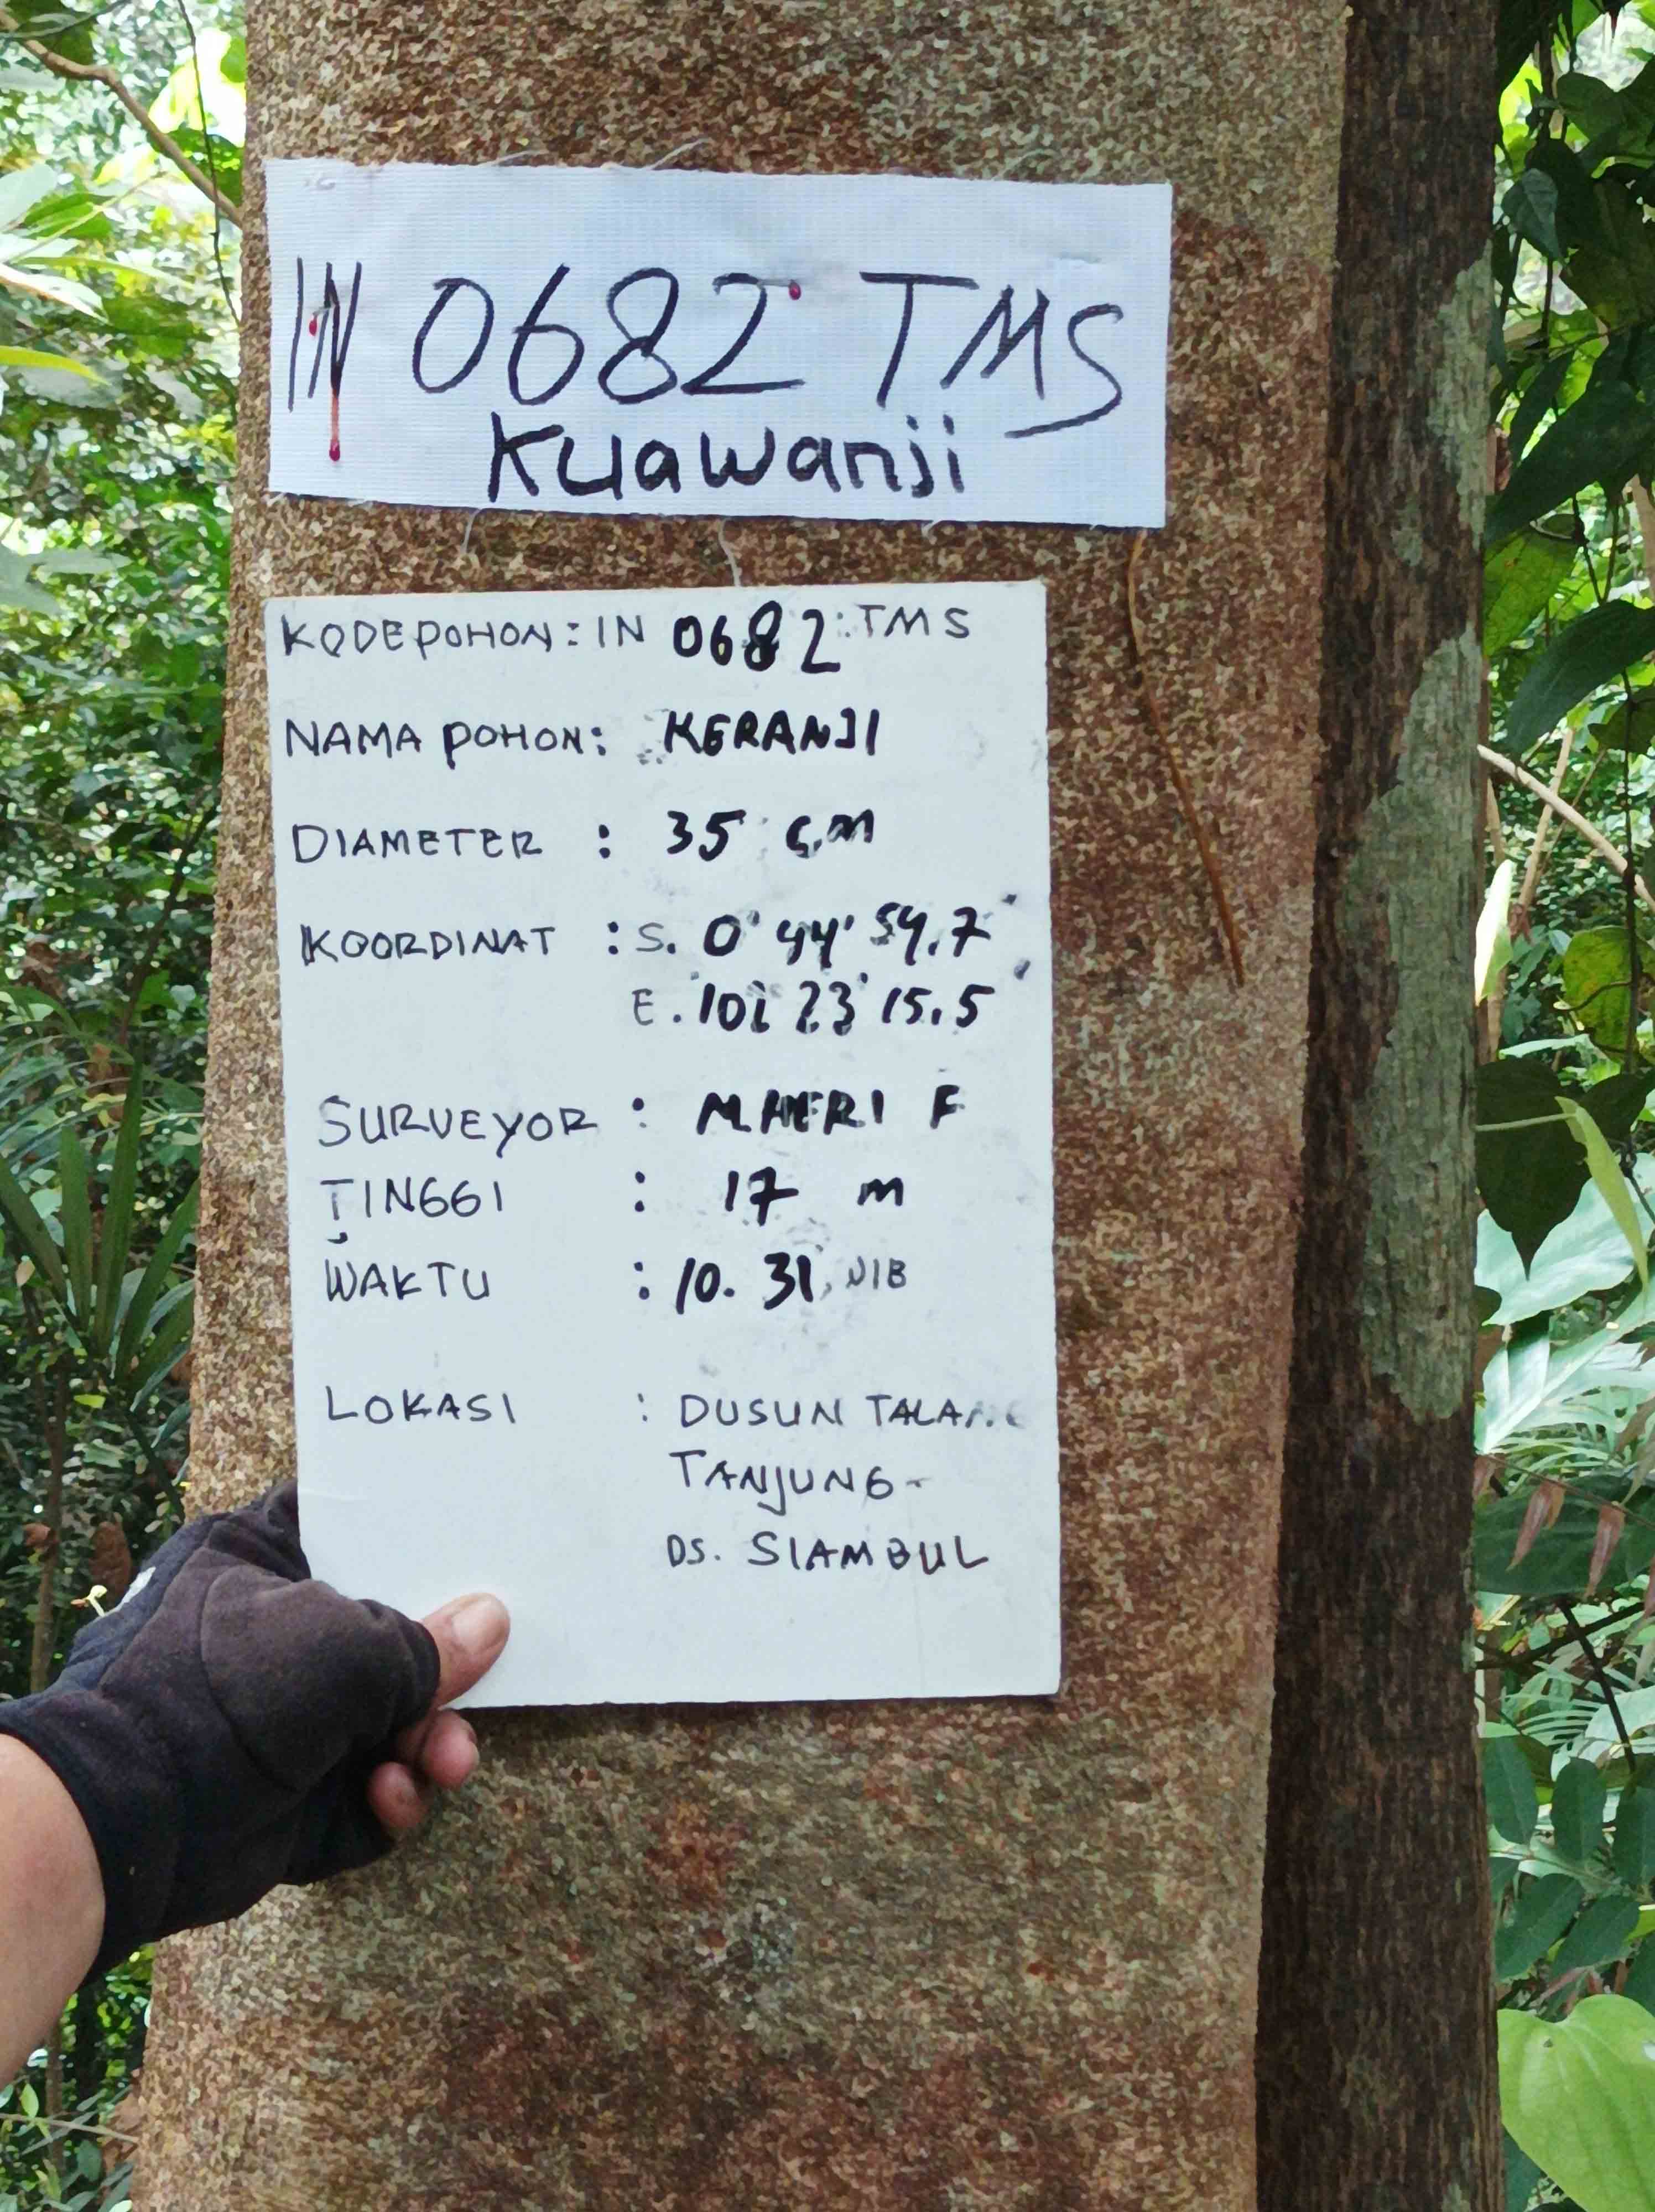 IN 0682 TMS
Kuawanji
KODE POHON : IN 0682 TMS
NAMA POHON : KERANJI
DIAMETER : 35 cm
KOORDINAT : S. 0° 44' 54.7"
E. 101° 23' 15.5"
SURVEYOR : F
TINGGI : 17 m
WAKTU : 10.31 WIB
LOKASI : DUSUN TALANG
TANJUNG -
DS. SIAMBUL